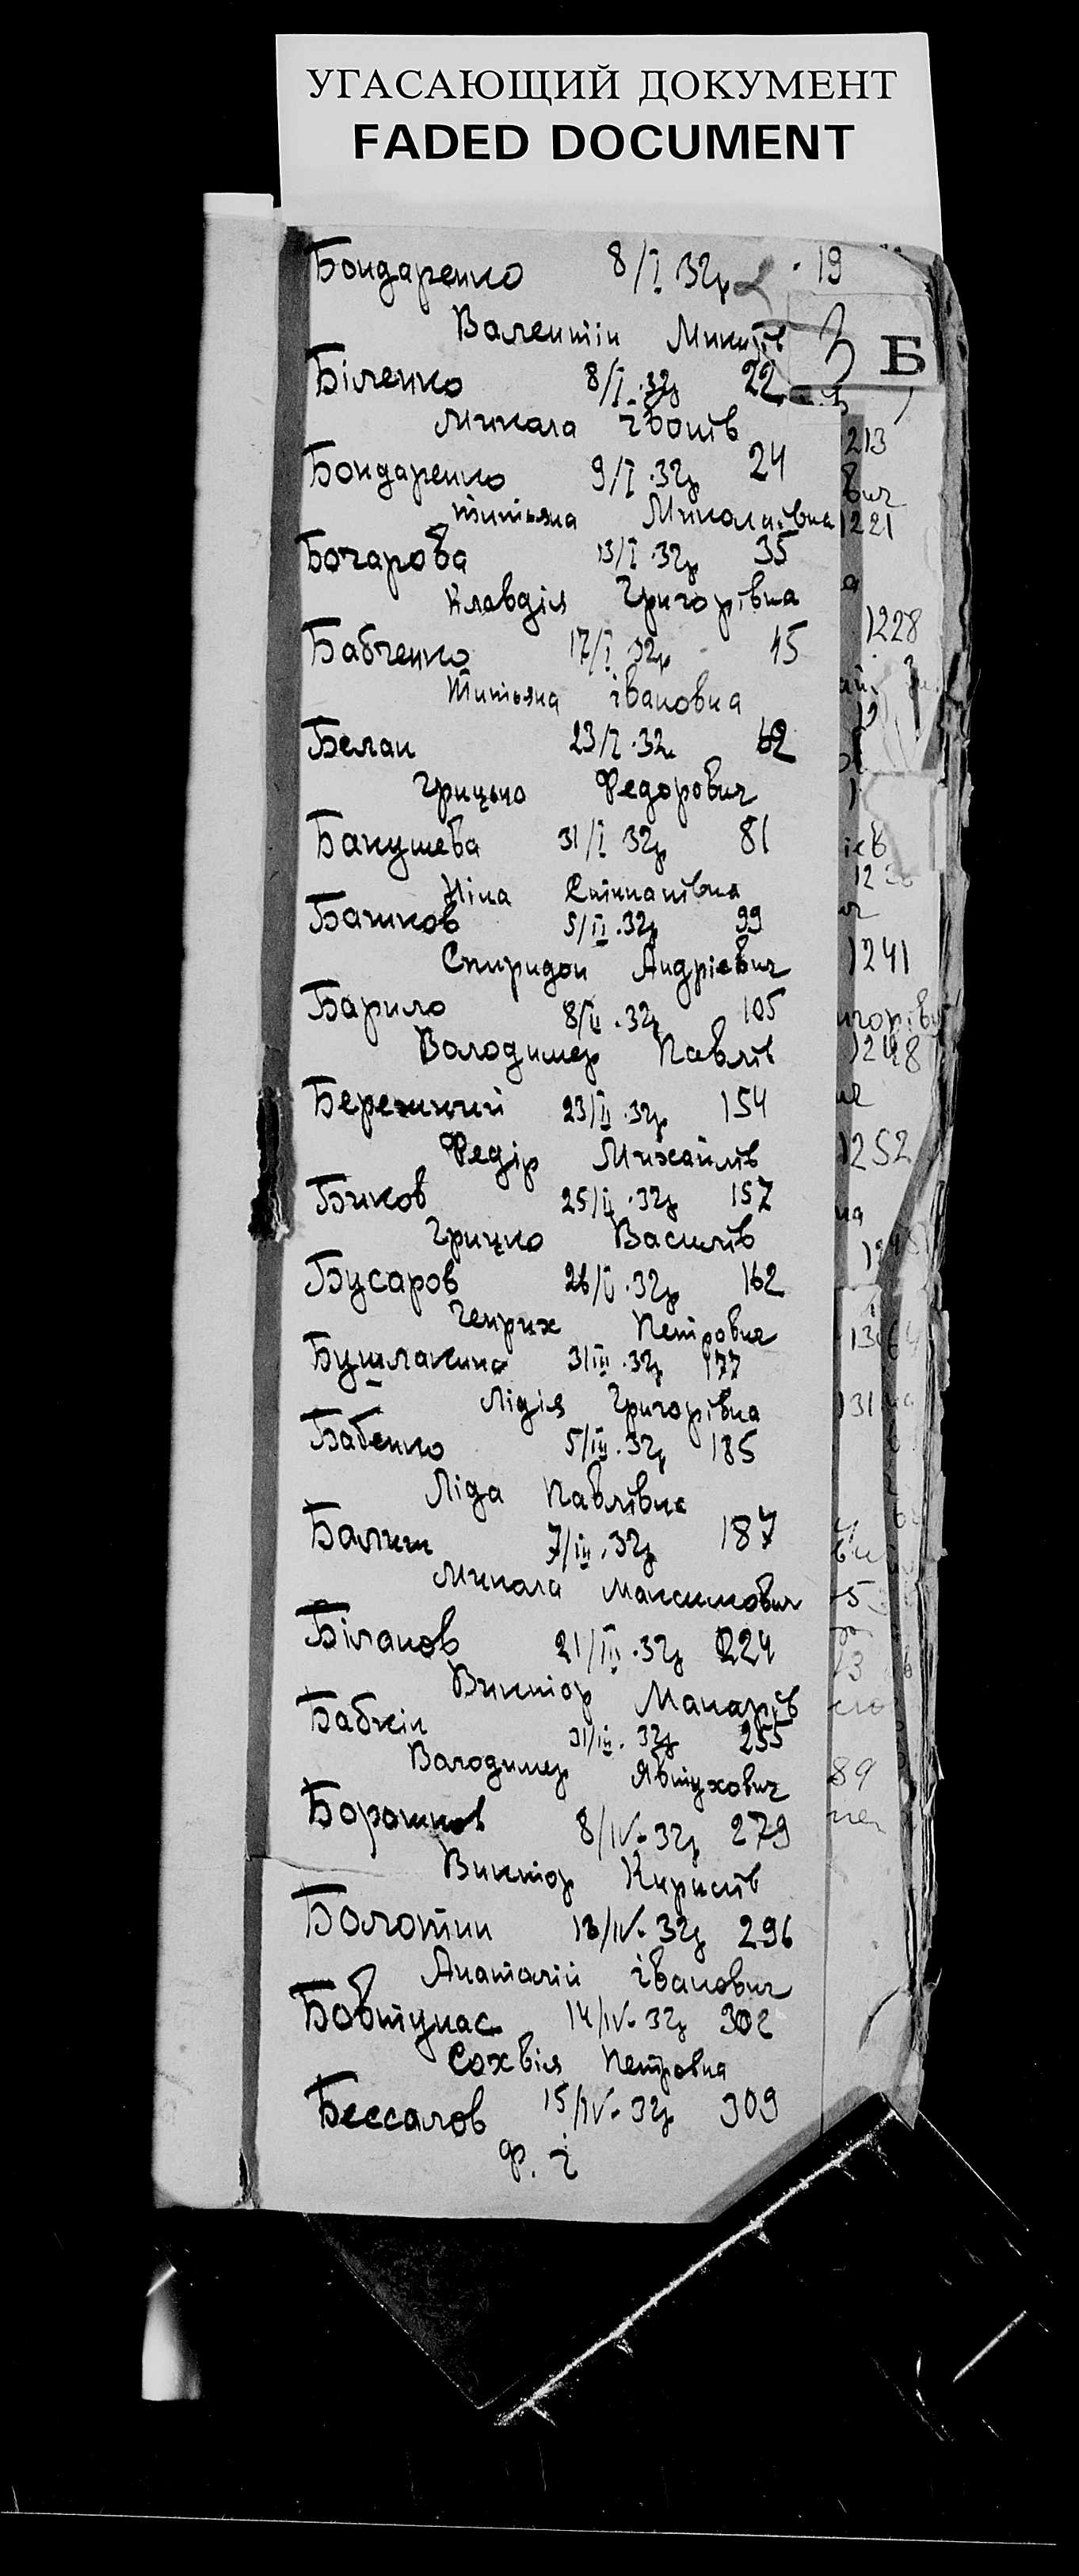 УГАСАЮЩИЙ ДОКУМЕНТ
FADED DOCUMENT
Бондаренко 8/I 32р 19
Валентін Микитів
3 Б
Біленко 8/I.32р 22
Микола івонів
Бондаренко 9/I.32р 24
Титьяна Миколаівна
Бочарова 13/I.32р 35
Клавдія Григорівна
Бабченко 17/I.32р 45
Титьяна івановна
Белан 23/I.32р 62
Грицько Федорович
Бакушева 31/I 32р 81
Ніна
Башков 5/II.32р 99
Спиридон Андрієвич
Барило 8/II.32р 105
Володимер Павлів
Бережний 23/II.32р 154
Федір Михайлів
Биков 25/II.32р 157
Грицко Василів
Бусаров 26/II.32р 162
Генрих Петрович
Бушлакина 3/III.32р 177
Лідія Григорівна
Бабенко 5/III.32р 185
Ліда Павлівна
Балиш 7/III.32р 187
Микола Максимович
Біланов 21/III.32р 224
Виктор Макарів
Бабкін 31/III.32р 255
Володимер Явтухович
Борошков 8/IV.32р 279
Виктор Кирилів
Болотин 13/IV.32р 296
Анаталій іванович
Бовтунас 14/IV.32р 302
Сохвія Петровна
Бессалов 15/IV.32р 309
Ф. і
213
вич
1221
1228
1241
1248
1252